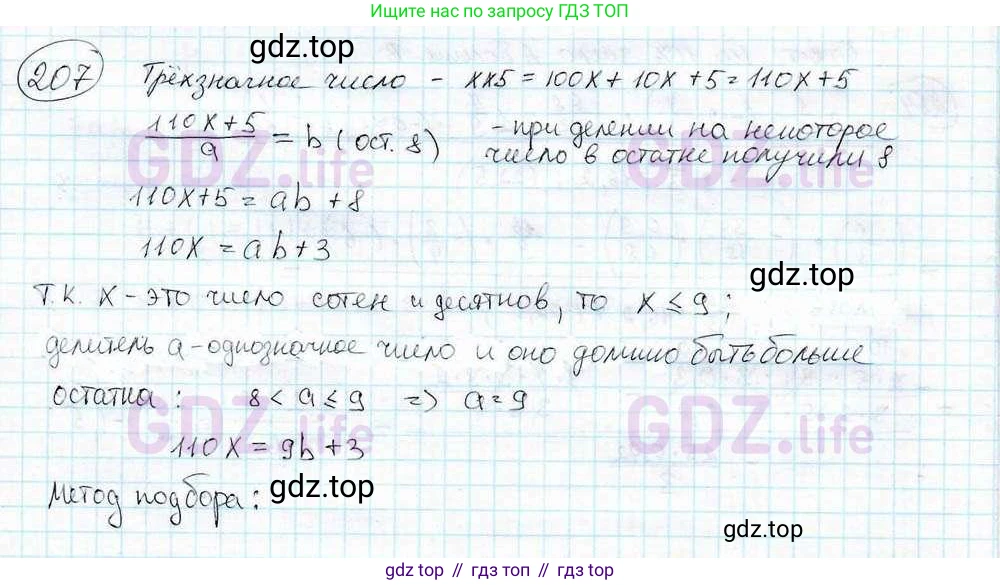 Ищите нас по запросу ГДЗ ТОП
gdz.top
207 Трёхзначное число - xx5 = 100x + 10x + 5 = 110x + 5
110x+5 / a = b (ост. 8) - при делении на некоторое
число в остатке получили 8
GDZ.life GDZ.life
110x+5 = ab + 8
110x = ab + 3
gdz.top
Т.к. x - это число сотен и десятков, то x ≤ 9;
делитель a - однозначное число и оно должно быть больше
остатка: 8 < a ≤ 9 => a = 9
GDZ.life GDZ.life
110x = 9b + 3
Метод подбора:
gdz.top
gdz.top
gdz top // гдз топ // gdz.top